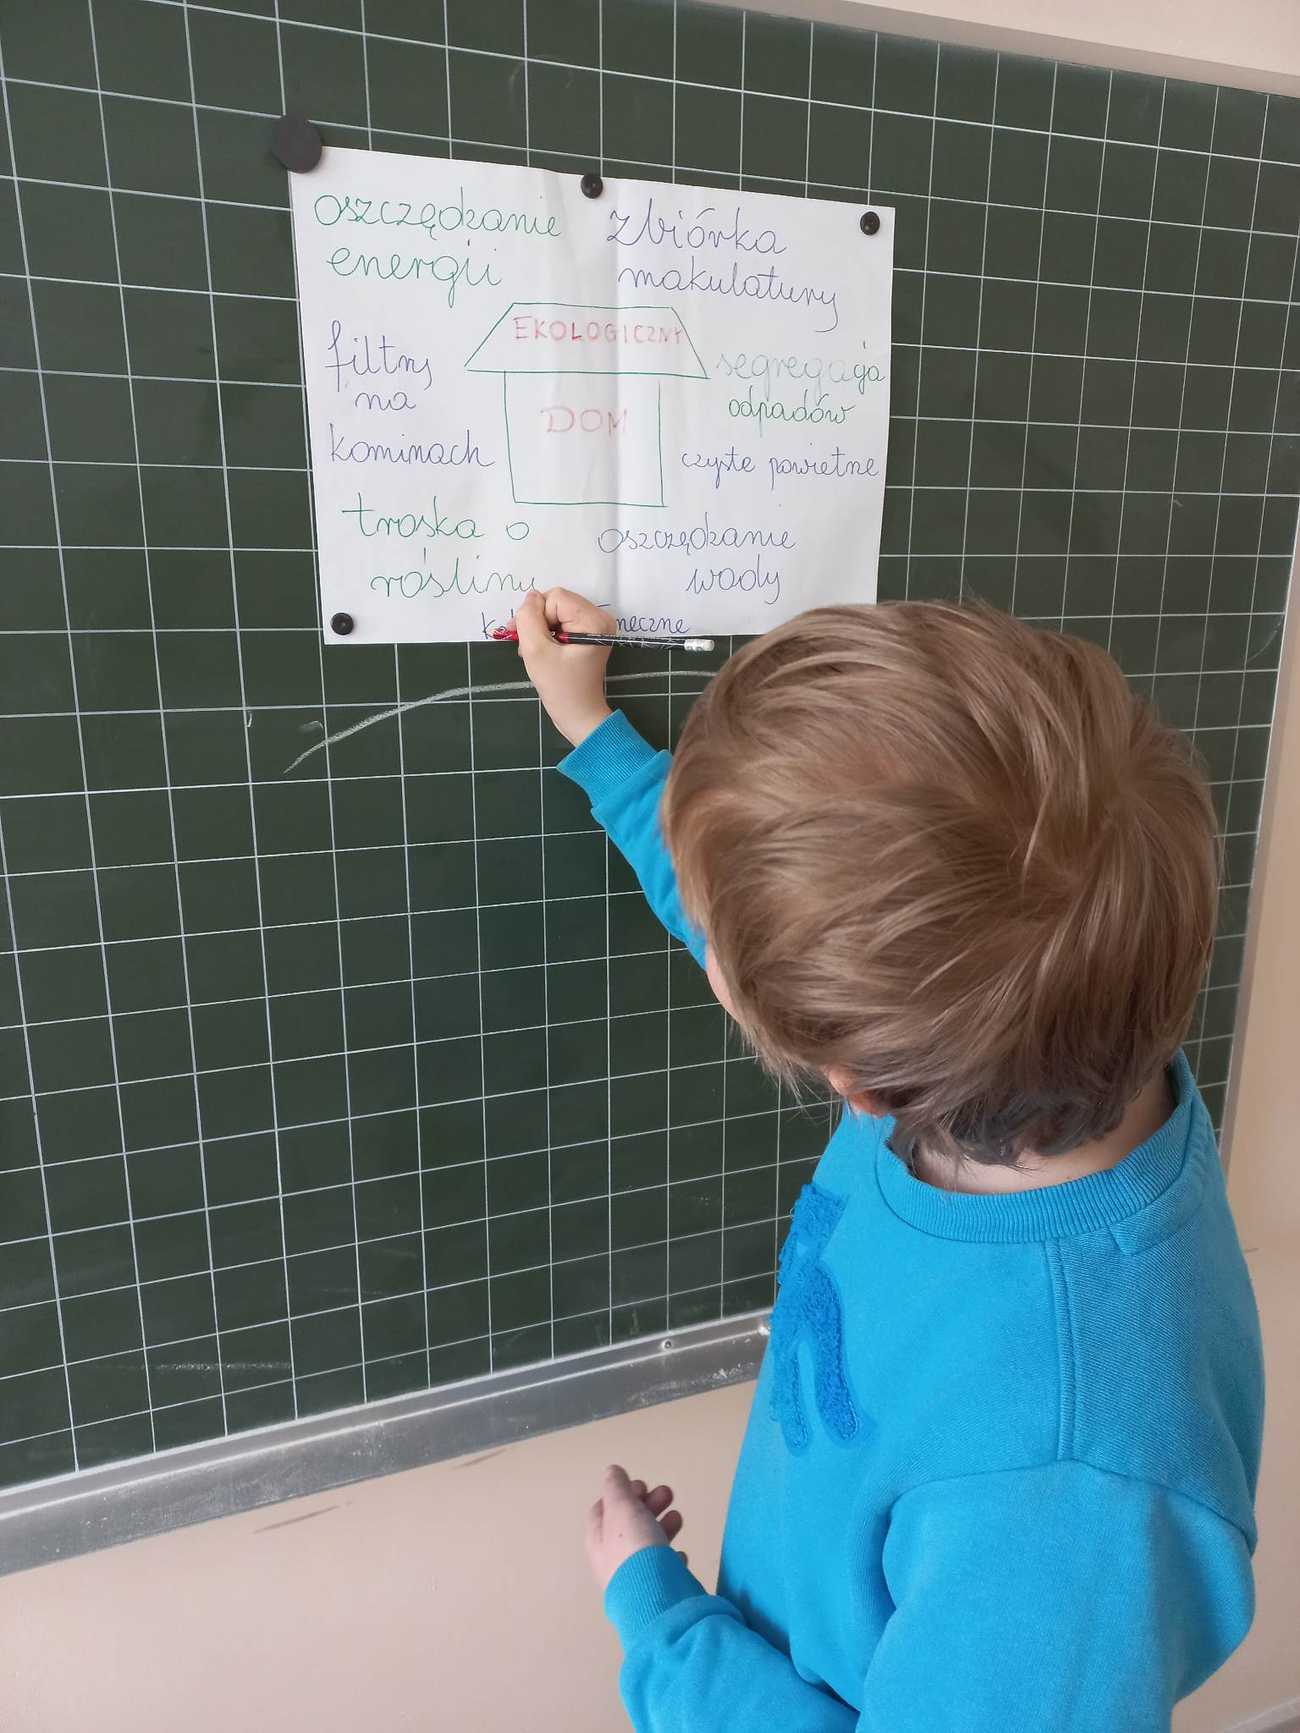 oszczędzanie
energii
zbiórka
makulatury
EKOLOGICZNY
DOM
filtry
na
kominach
segregacja
odpadów
czyste powietrze
troska o
rośliny
oszczędzanie
wody